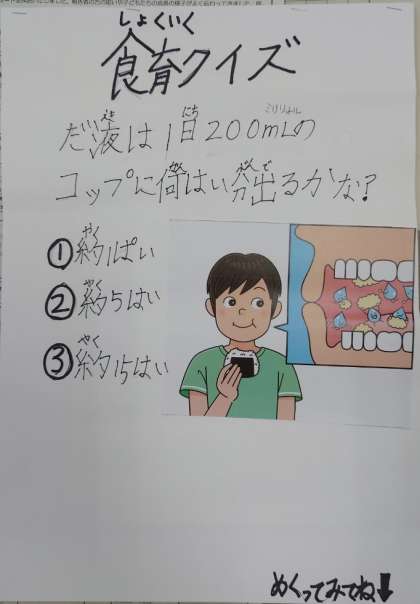 しょくいく
食育クイズ
えき にち ミリリットル
だ液は1日200mLの
なん ぶん で
コップに何ばい分出るかな?
やく
①約1ぱい
やく
②約5はい
やく
③約15はい
めくってみてね↓